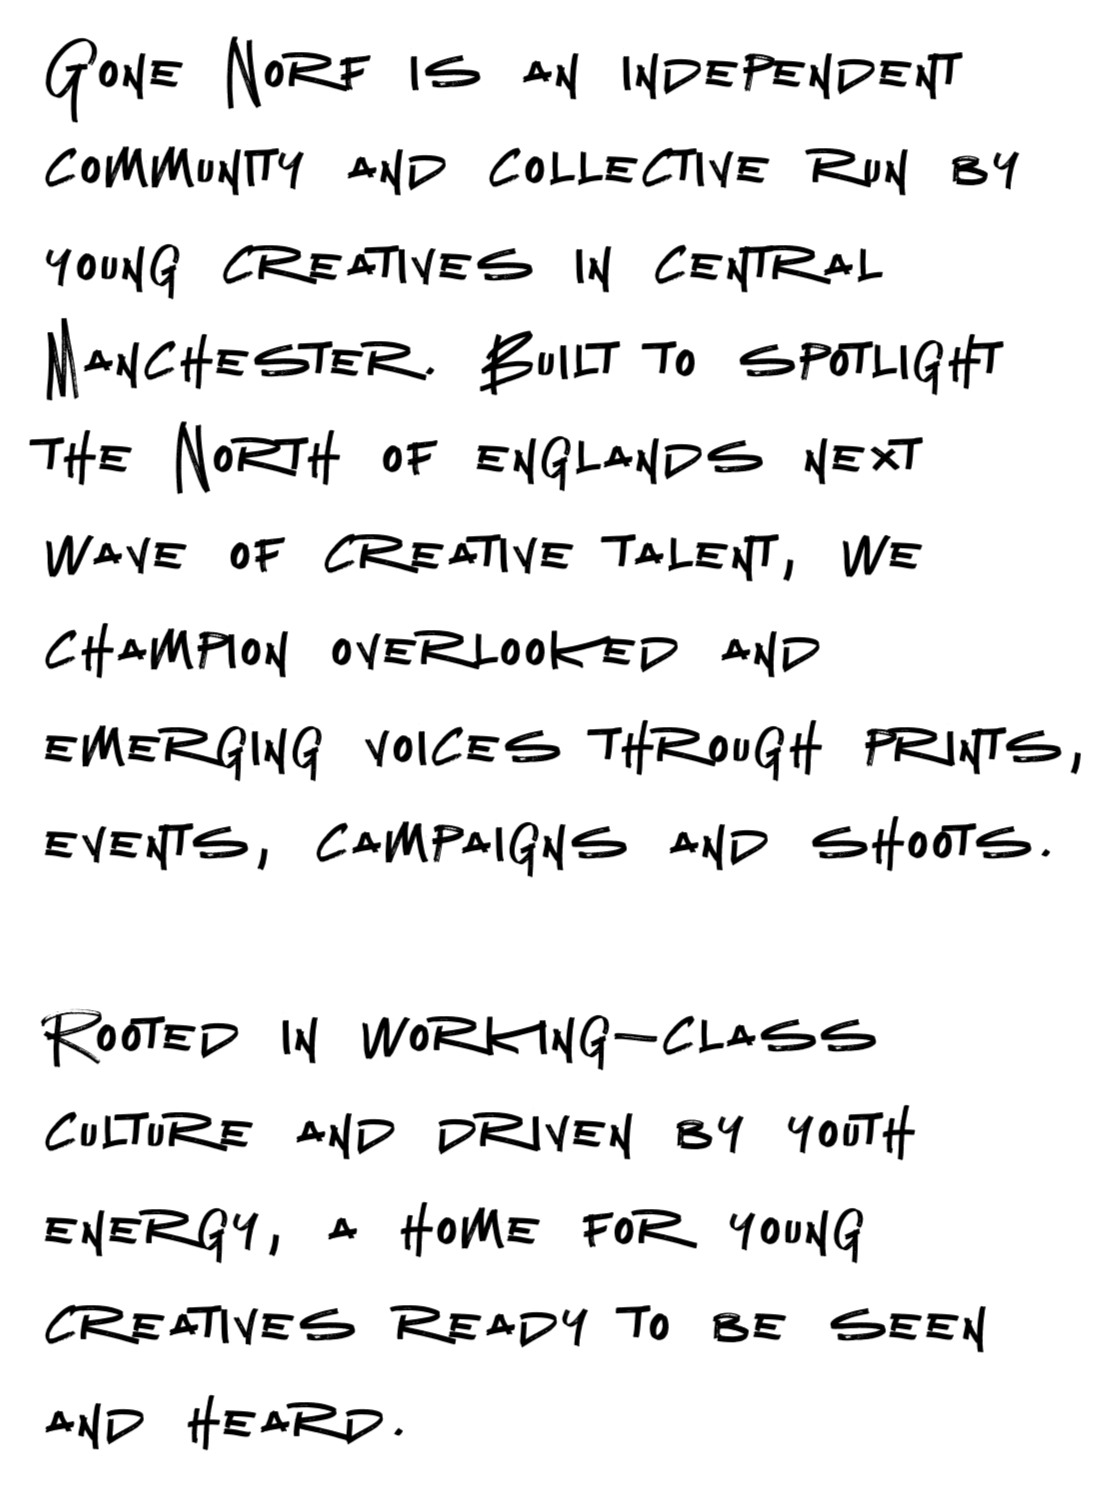 Gone Norf is an independent
community and collective run by
young creatives in central
Manchester. Built to spotlight
the North of englands next
wave of creative talent, we
champion overlooked and
emerging voices through prints,
events, campaigns and shoots.
Rooted in working-class
culture and driven by youth
energy, a home for young
creatives ready to be seen
and heard.